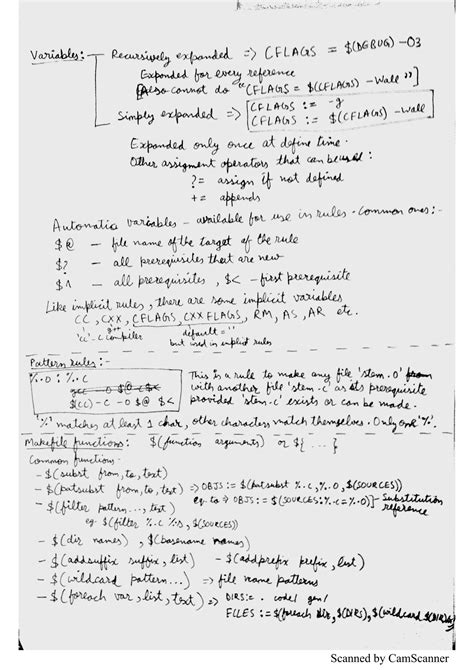 Variables:- Recursively expanded => CFLAGS = $(DEBUG) -O3
Expanded for every reference
[Also cannot do "CFLAGS = $(CFLAGS) -Wall"]
Simply expanded => CFLAGS := -g
CFLAGS := $(CFLAGS) -Wall
Expanded only once at define time.
Other assigment operators that can be used:
?= assign if not defined
+= appends
Automatic variables - available for use in rules. Common ones:-
$@ - file name of the target of the rule
$? - all prerequisites that are new
$^ - all prerequisites, $< - first prerequisite
Like implicit rules, there are some implicit variables
CC, CXX, CFLAGS, CXXFLAGS, RM, AS, AR etc.
'cc'-c compiler g++ default = ''
but used in implicit rules
Pattern rules:-
%.o : %.c
gcc -o $@ c $<
$(cc) -c -o $@ $<
This is a rule to make any file 'stem.o' from
with another file 'stem.c' as its prerequisite
provided 'stem.c' exists or can be made.
'%' matches at least 1 char, other characters match themselves. Only one '%'.
Makefile functions: $(function arguments) or ${ ... }
Common functions:
- $(subst from,to,text)
- $(patsubst from,to,text) => OBJS := $(patsubst %.c,%.o,$(SOURCES))
eq. to => OBJS := $(SOURCES:%.c=%.o)] - Substitution reference
- $(filter pattern..., text)
eg $(filter %.c %.s, $(SOURCES))
- $(dir names), $(basename names)
- $(addsuffix suffix, list) - $(addprefix prefix, list)
- $(wildcard pattern...) => file name patterns
- $(foreach var, list, text) => DIRS := . code/ gen/
FILES := $(foreach dir, $(DIRS), $(wildcard $(DIR)/
Scanned by CamScanner